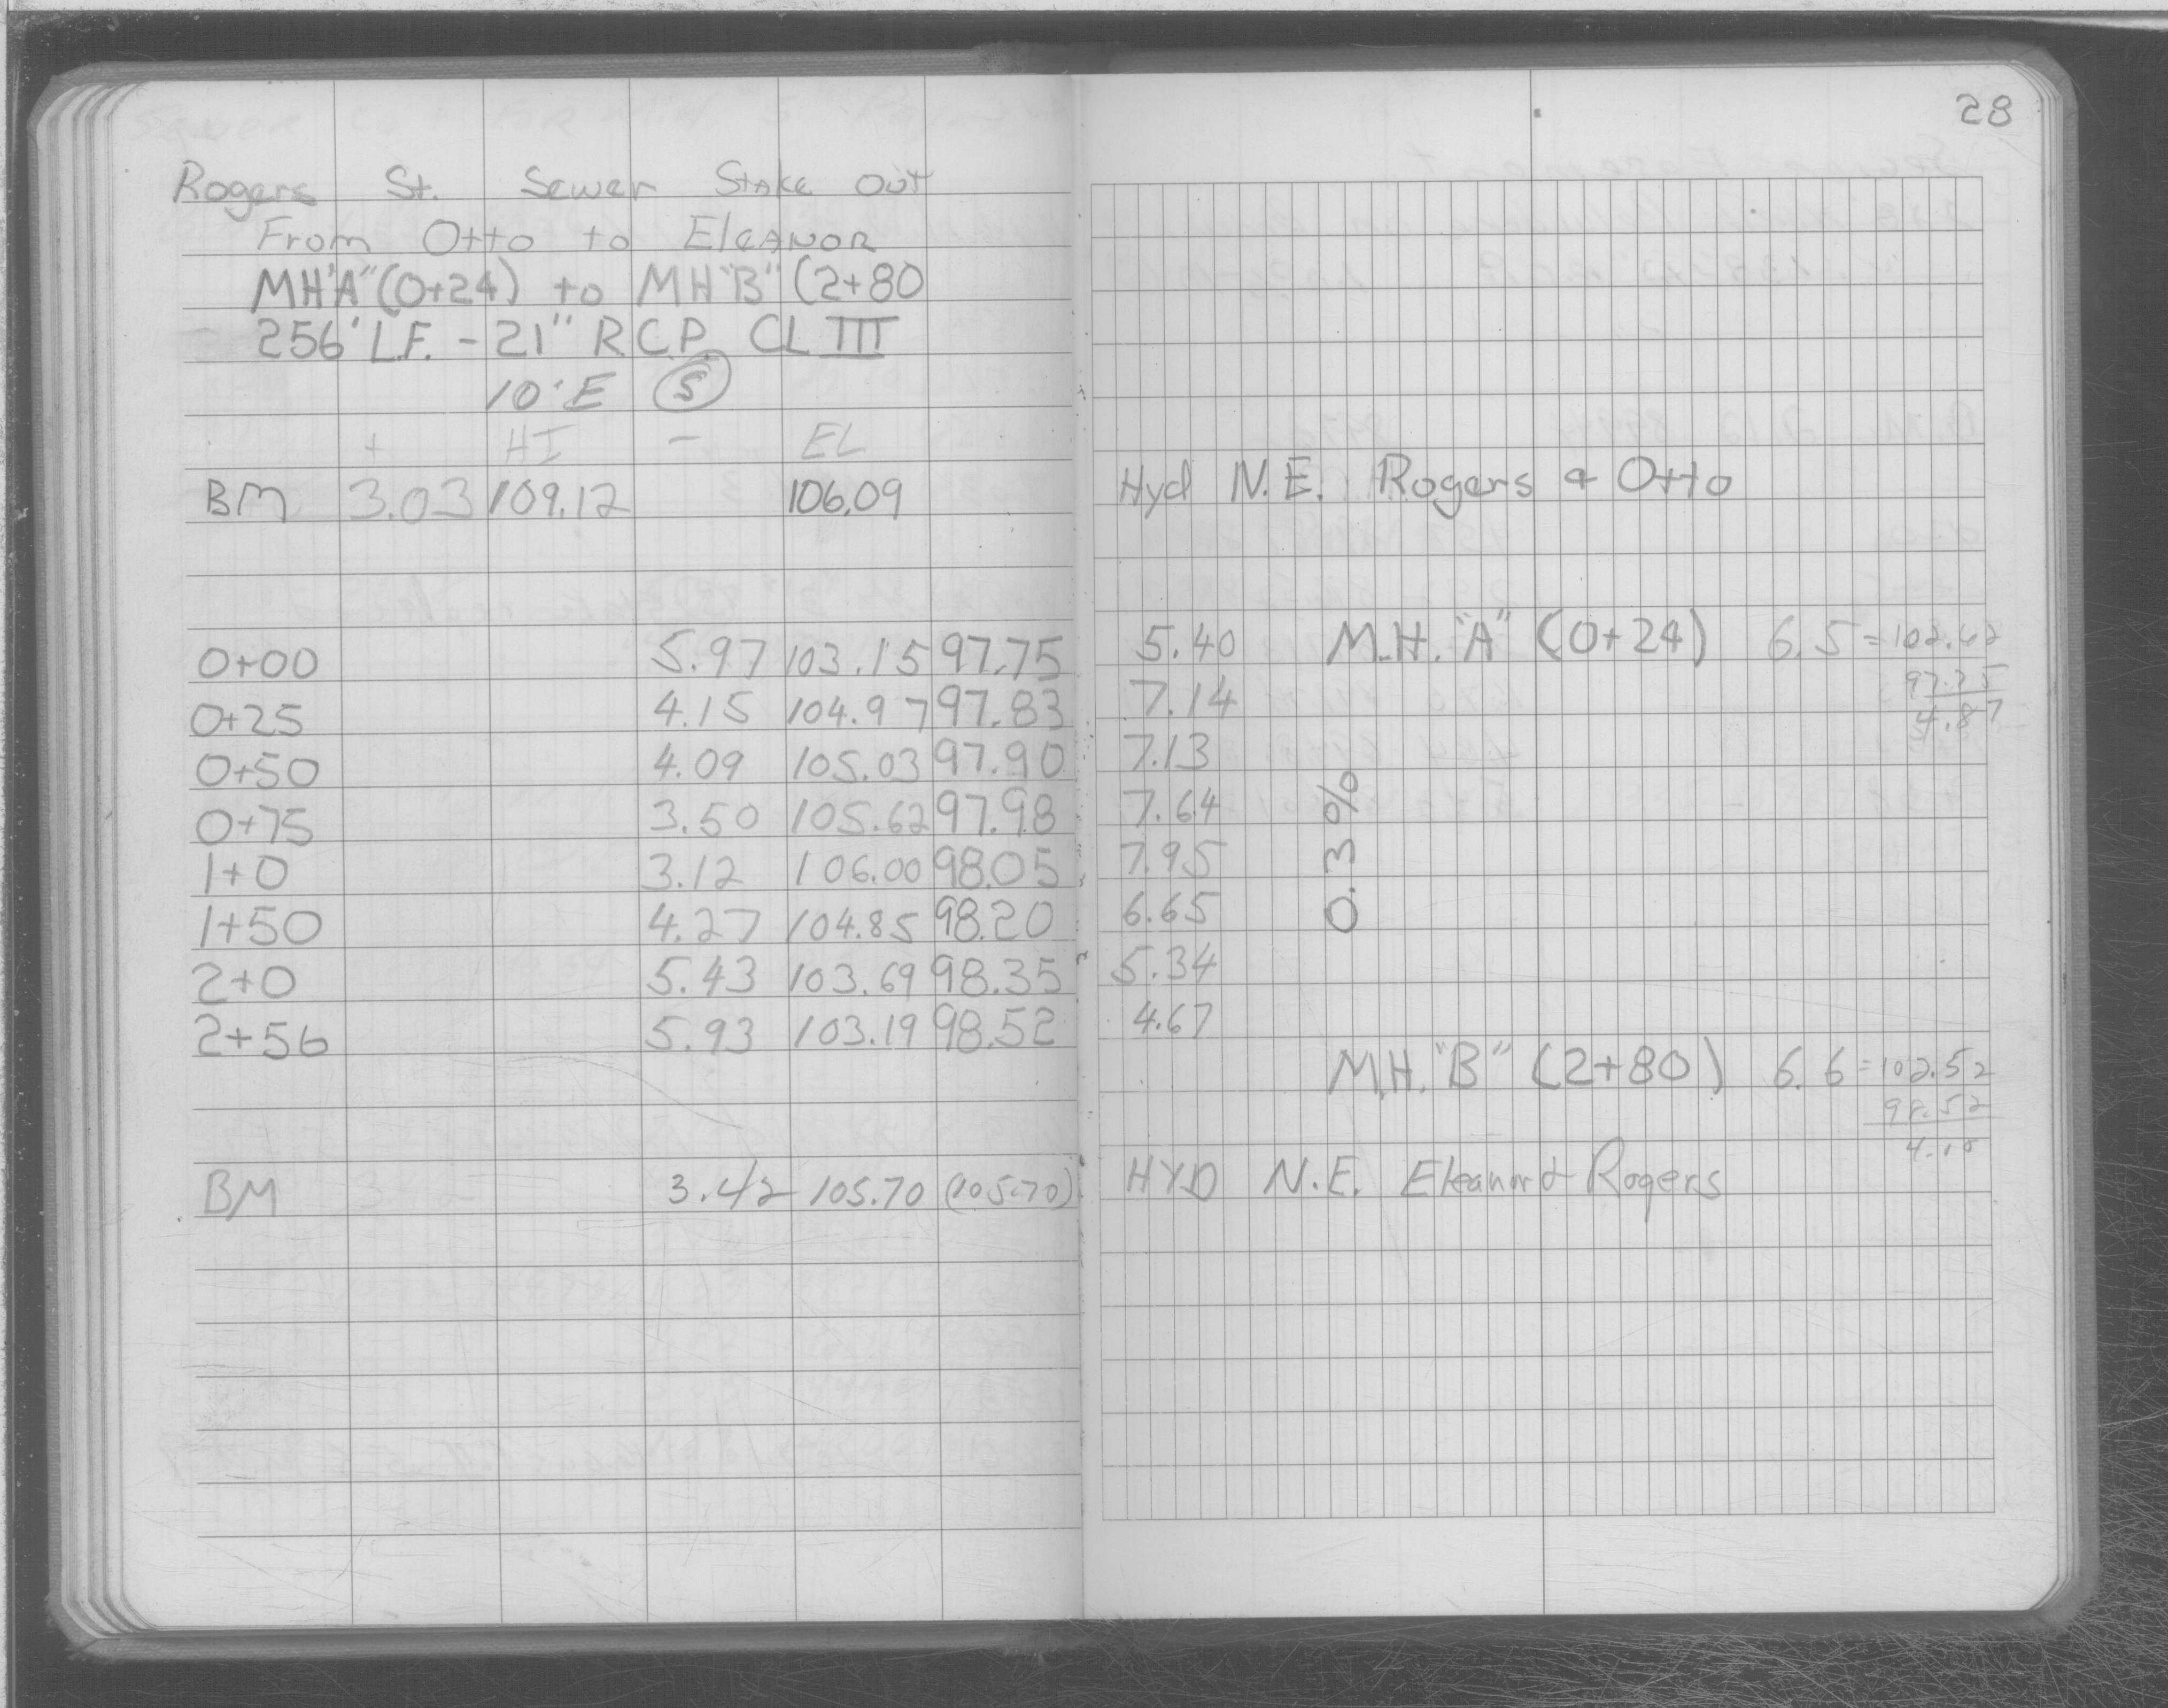 28
Rogers St. Sewer Stake Out
From Otto to Eleanor
MH"A" (0+24) to MH"B" (2+80
256' L.F. - 21" R.C.P. CL III
10' E (S)
+ HI - EL
BM 3.03 109.12 106.09 Hyd N.E. Rogers & Otto
0+00 5.97 103.15 97.75 5.40 M.H. "A" (0+24) 6.5 = 102.62
0+25 4.15 104.97 97.83 7.14 97.75
4.87
0+50 4.09 105.03 97.90 7.13
0+75 3.50 105.62 97.98 7.64
0.3%
1+0 3.12 106.00 98.05 7.95
1+50 4.27 104.85 98.20 6.65
2+0 5.43 103.69 98.35 5.34
2+56 5.93 103.19 98.52 4.67
M.H. "B" (2+80) 6.6 = 102.52
98.52
BM 3.42 105.70 (105.70) HYD N.E. Eleanor & Rogers